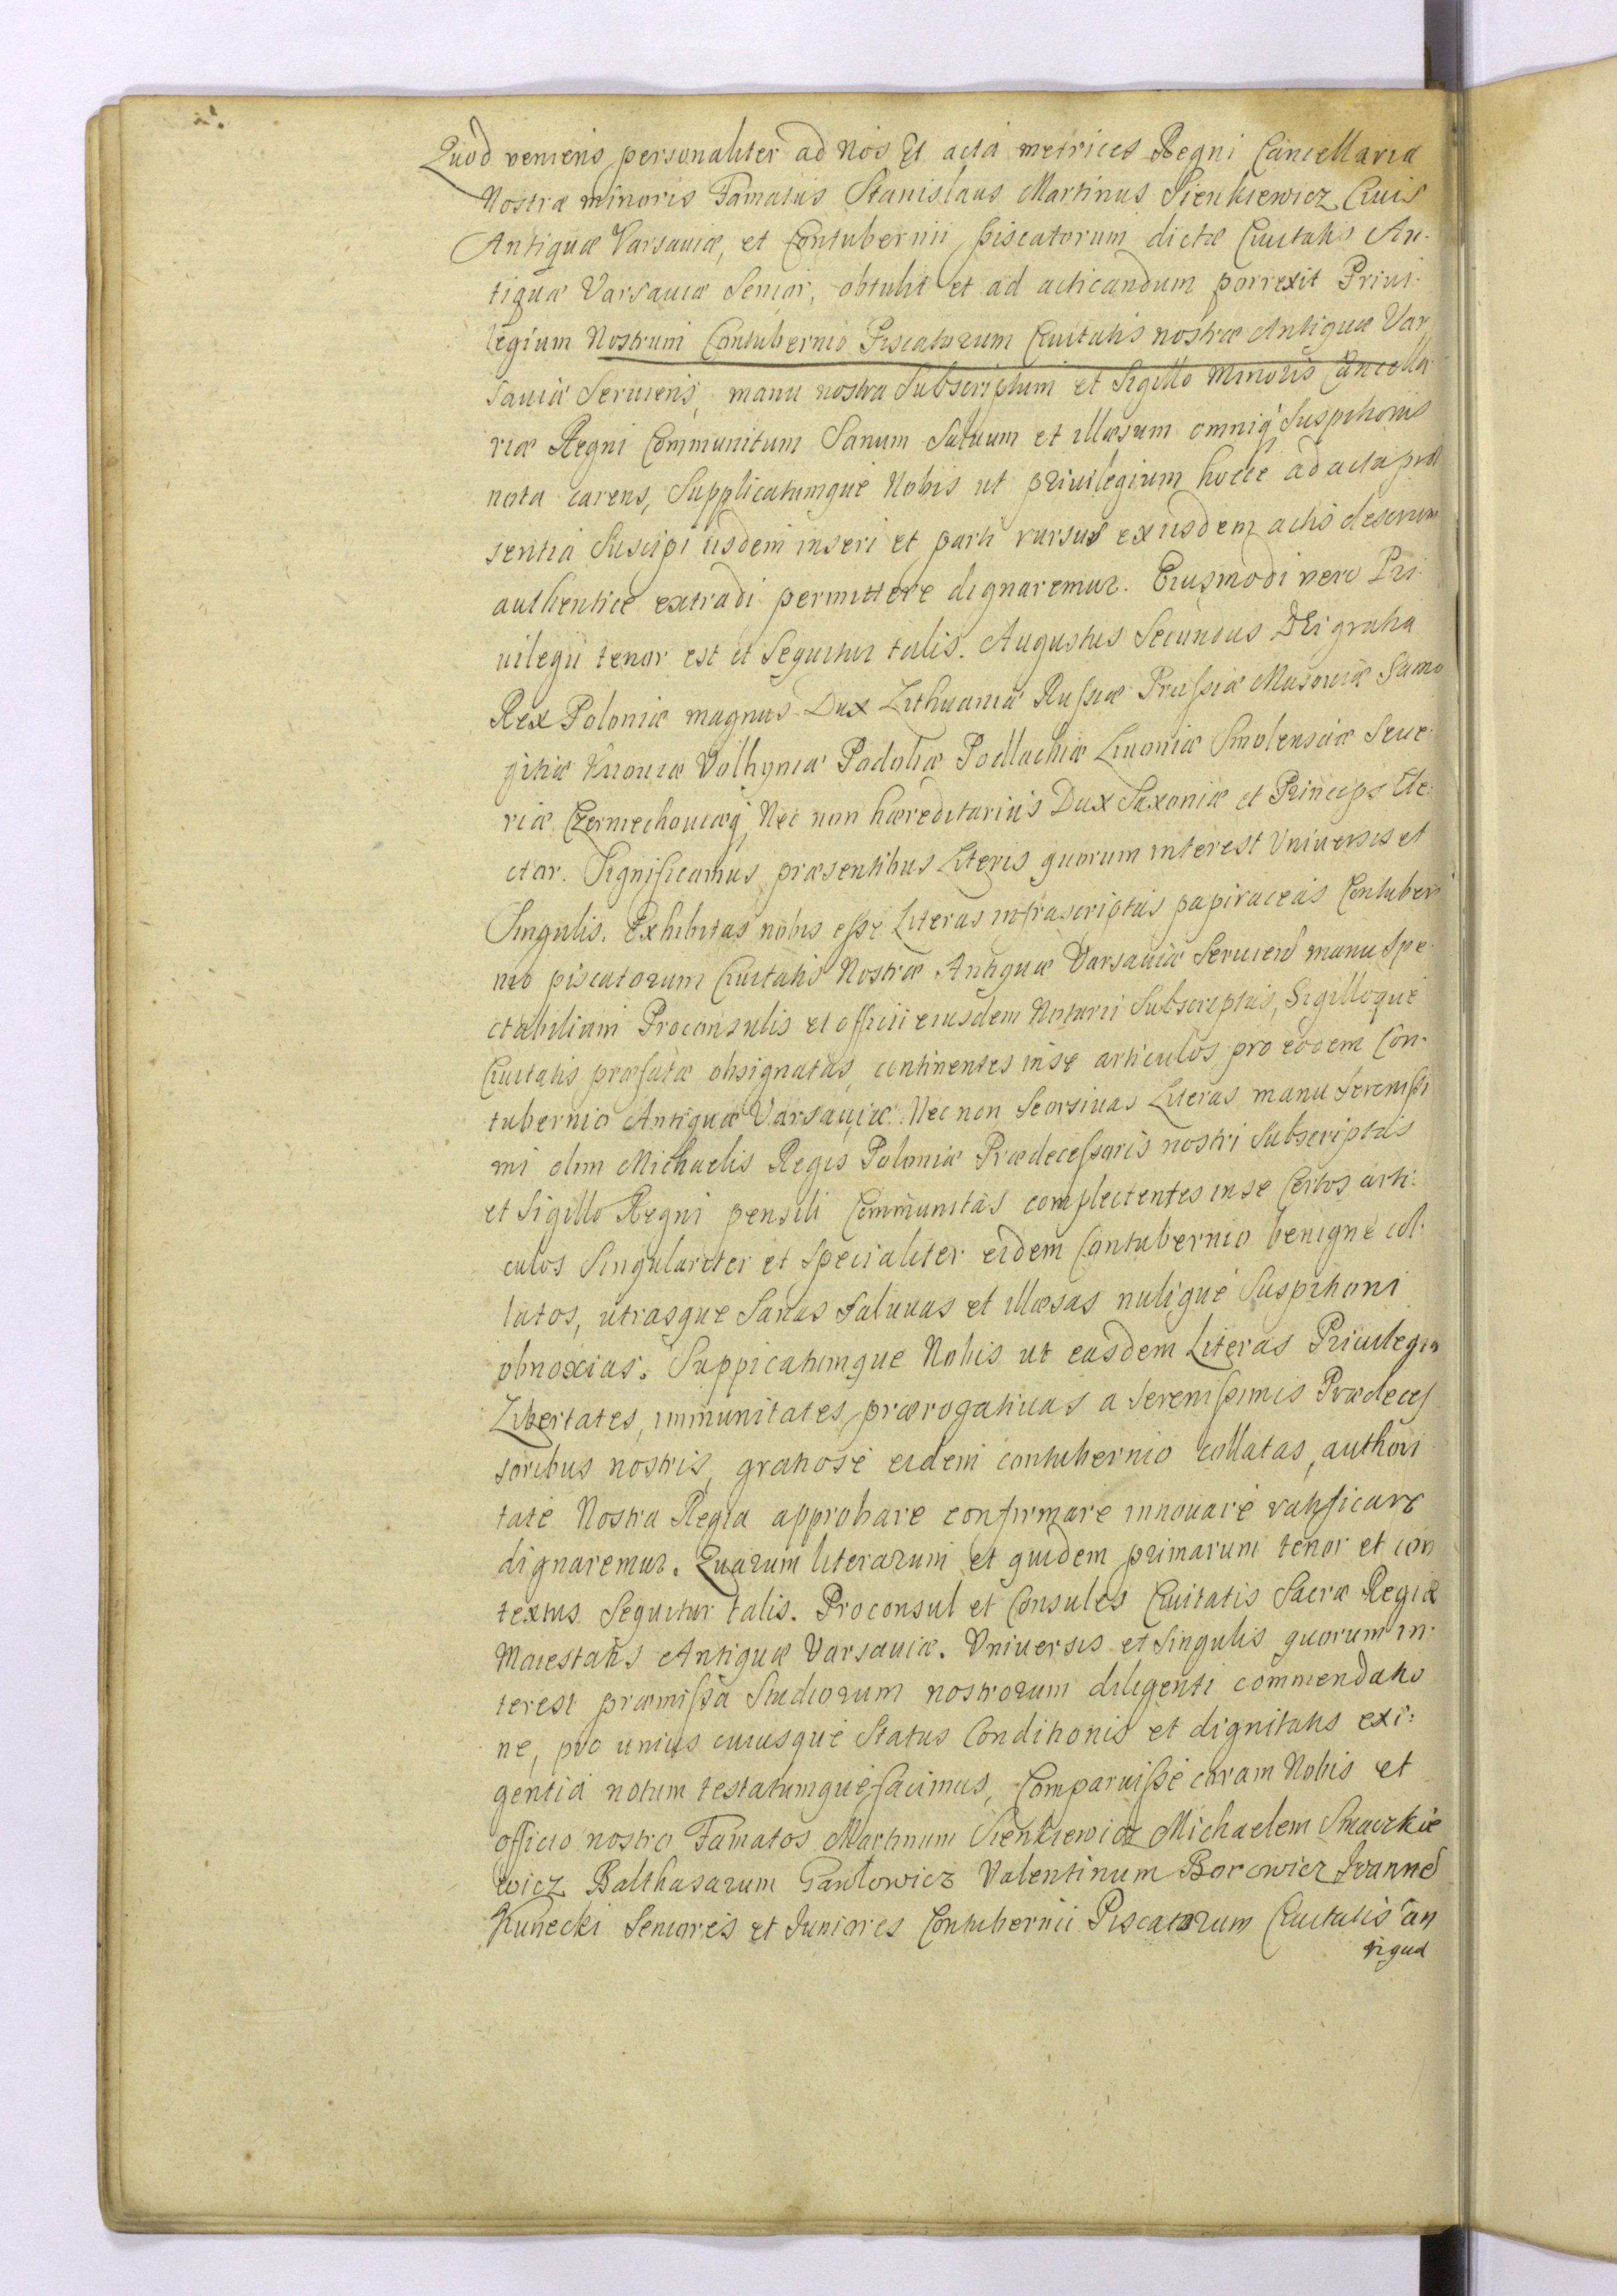 Quod veniens personaliter ad Nos Et acta metrices Regni Cancellaria
Nostræ minoris Famatus Stanislaus Martinus Sienkiewicz Ciuis
Antiquæ Varsauiæ, et Contubernii piscatorum dictæ Ciuitatis An-
tiquæ Varsauiæ Senior, obtulit et ad acticandum porrexit Priui-
legium Nostrum Contubernio Piscatorum Ciuitatis nostræ Antiquæ Var
sauiæ Seruiens, manu nostra Subscriptum et Sigillo Minoris Cancella
riæ Regni Communitum Sanum Saluum et illæsum omniq; Suspitionis
nota carens, Supplicatumque Nobis ut priuilegium hocce ad acta præ
sentia Suscipi iisdem inseri et parti rursus ex iisdem actis descrum
authentice extradi permittere dignaremur. Eiusmodi vero Pri-
uilegii tenor est et Sequitur talis. Augustus Secundus DEi gratia
Rex Poloniæ magnus Dux Lithuaniæ Russiæ Prussiæ Masouiæ Samo
gitiæ Kiiouiæ Volhyniæ Podoliæ Podlachiæ Liuoniæ Smolensciæ Seue-
riæ Czerniechouiæq; Nec non hæreditarius Dux Saxoniæ et Princeps Ele-
ctor. Significamus præsentibus Literis quorum interest Vniuersis et
Singulis. Exhibitas nobis esse Literas infrascriptas papiraceas Contuber
nio piscatorum Ciuitatis Nostræ Antiquæ Varsauiæ Seruiens manu Spe-
ctabilium Proconsulis et officii eiusdem Notarii Subscriptas, Sigilloque
Ciuitatis præfatæ obsignatas, continentes in se articulos pro eodem Con-
tubernio Antiquæ Varsauiæ. Nec non Seorsiuas Literas manu Serenissi
mi olim Michaelis Regis Poloniæ Prædecessoris nostri Subscriptas
et Sigillo Regni pensili Communitas complectentes in se Certos arti-
culos Singulariter et Specialiter eidem Contubernio benigne col-
latos, utrasque Sanas Saluuas et illæsas nulique Suspitioni
obnoxias. Suppicatumque Nobis ut easdem Literas Priuilegia
Libertates, immunitates, prærogatiuas a Serenissimis Prædeces
soribus nostris, gratiose eidem contubernio collatas, authori
tate Nostra Regia approbare confirmare innouare ratificare
dignaremur. Quarum literarum et quidem primarum tenor et con
textus Sequitur talis. Proconsul et Consules Ciuitatis Sacræ Regiæ
Maiestatis Antiquæ Varsauiæ. Vniuersis et Singulis quorum in-
terest præmissa Studiorum nostrorum diligenti commendatio
ne, pro unius cuiusque Status Conditionis et dignitatis exi-
gentia notum testatumque facimus, Comparuisse coram Nobis et
officio nostro Famatos Martinum Sienkiewicz Michaelem Smaczkie
wicz Balthasarum Gawłowicz Valentinum Borowicz Ioannes
Kunecki Seniores et Juniores Contubernii Piscatorum Ciuitatis An
tiquæ